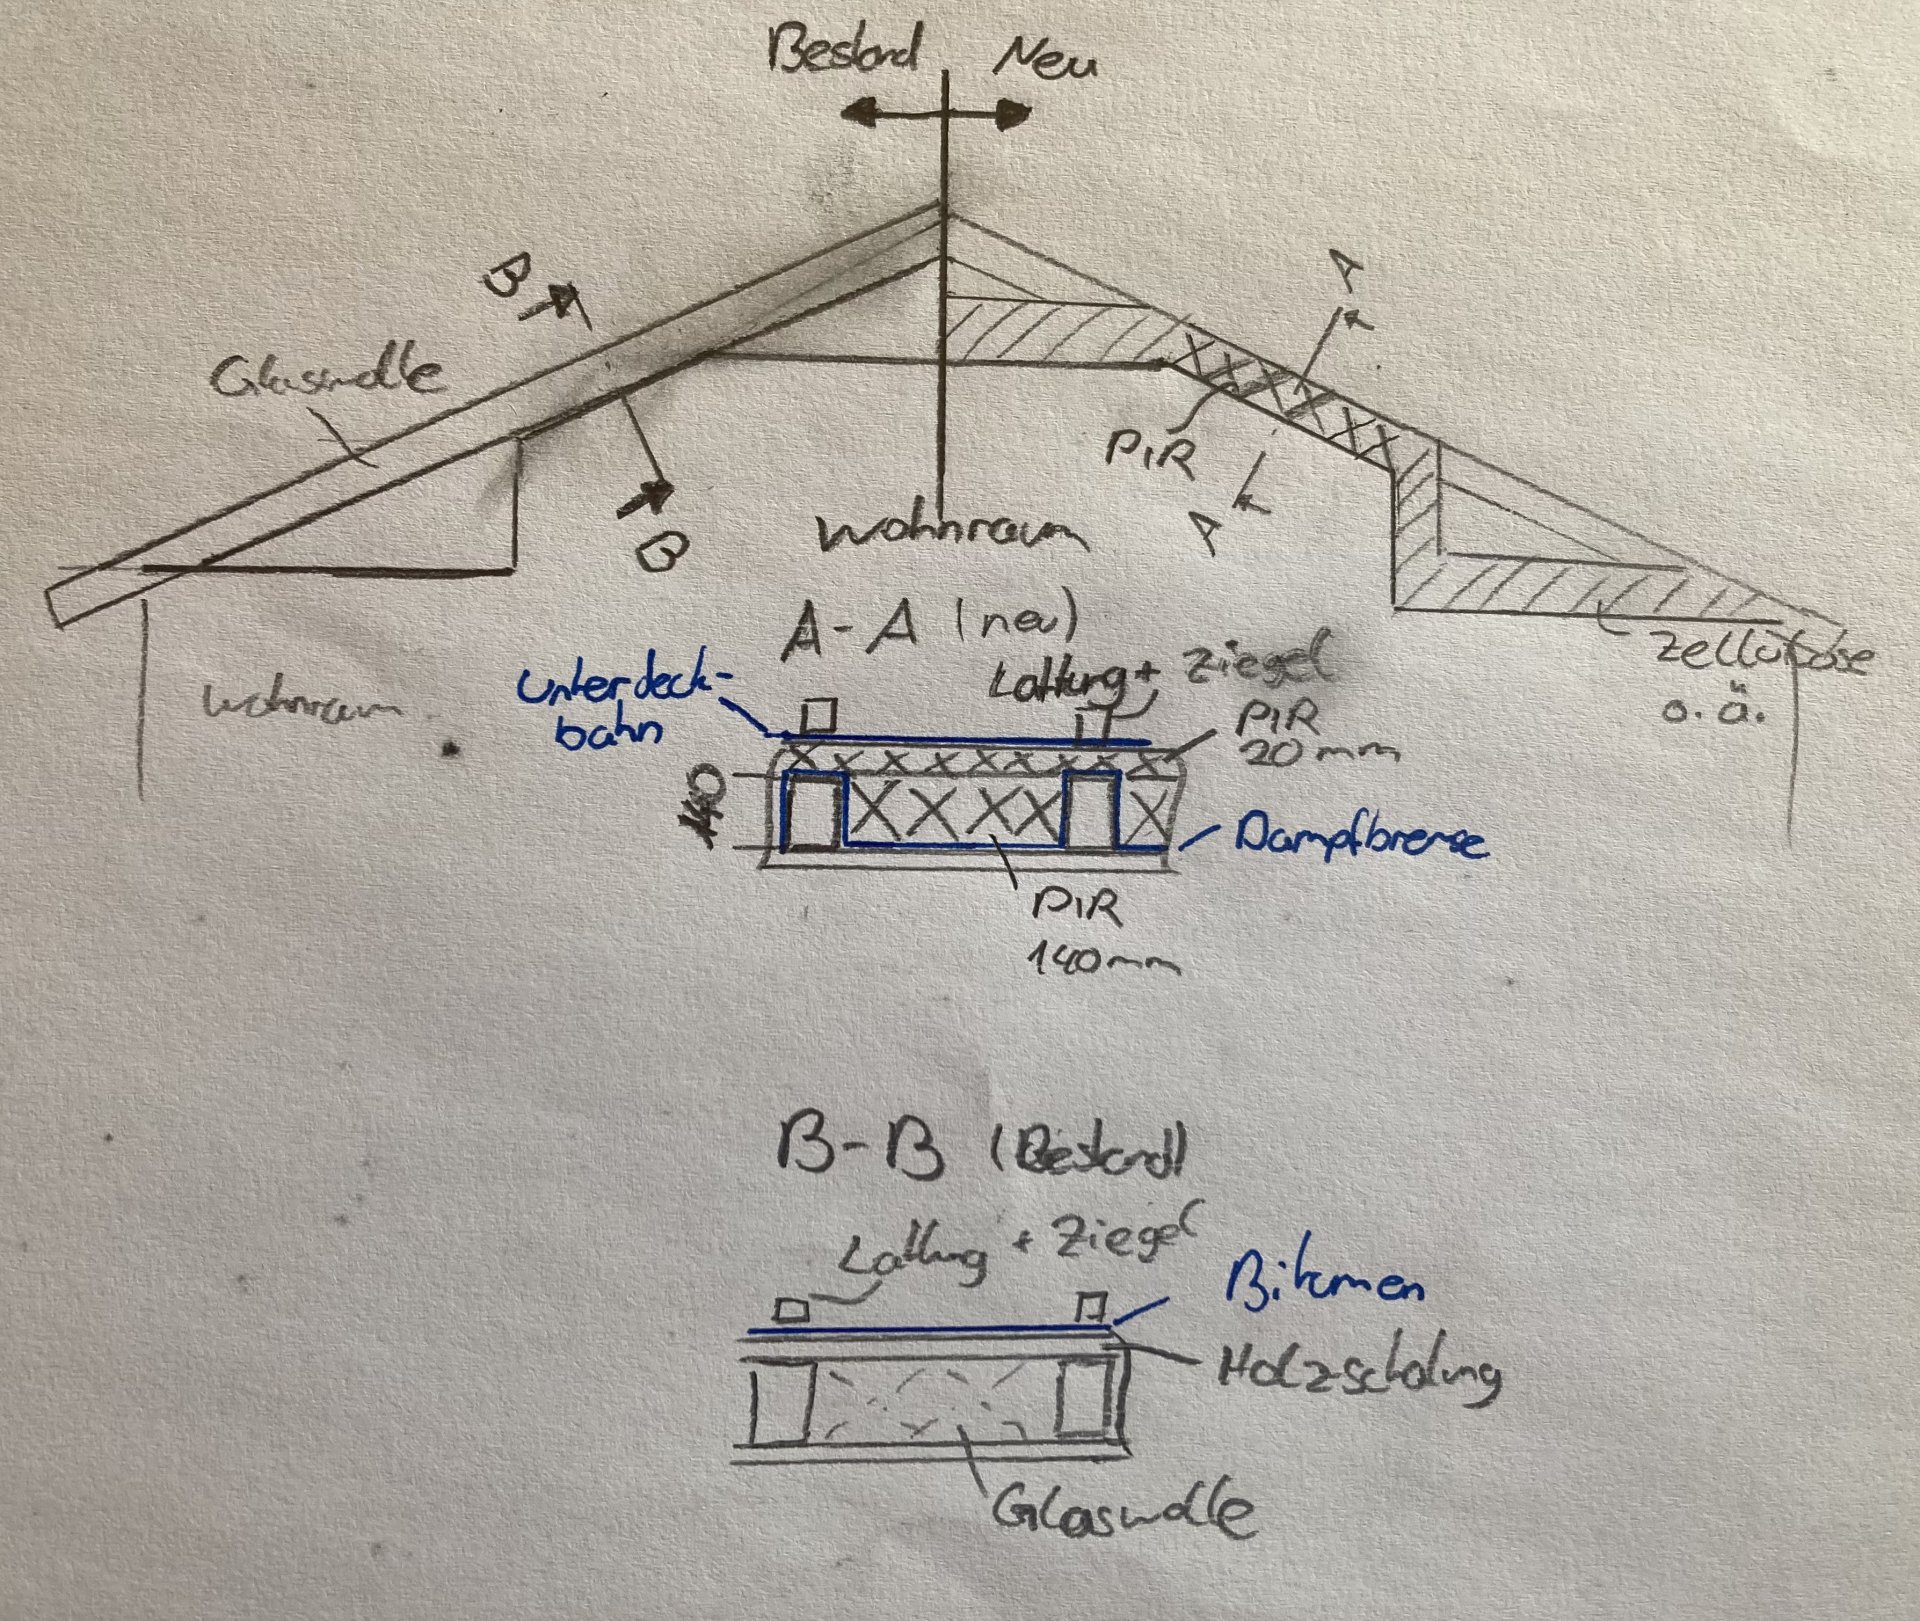 Bestand
Neu
B
A
Glaswolle
PIR
A
B
Wohnraum
A-A (neu)
Zellulose
o. ä.
Wohnraum
Unterdeck-
bahn
Lattung + Ziegel
PIR
20mm
140
Dampfbremse
PIR
140mm
B-B (Bestand)
Lattung + Ziegel
Bitumen
Holzschalung
Glaswolle